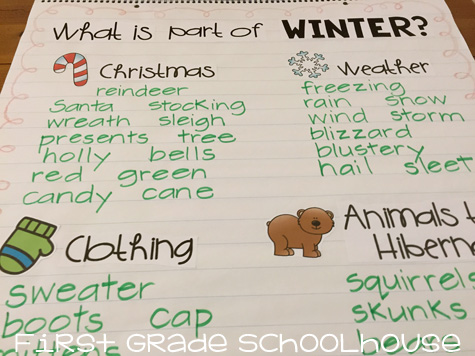 What is part of WINTER?
Christmas
reindeer
Santa stocking
wreath sleigh
presents tree
holly bells
red green
candy cane
Weather
freezing
rain snow
wind storm
blizzard
blustery
hail sleet
Clothing
sweater
boots cap
Animals
squirrels
skunks
First Grade Schoolhouse